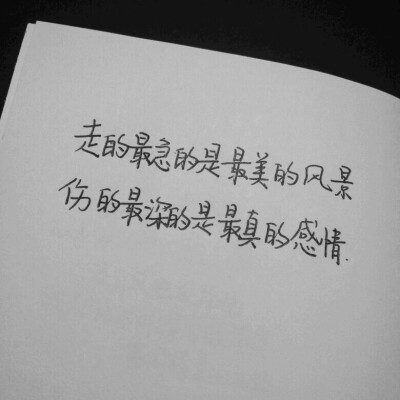 走的最急的是最美的风景
伤的最深的是最真的感情.